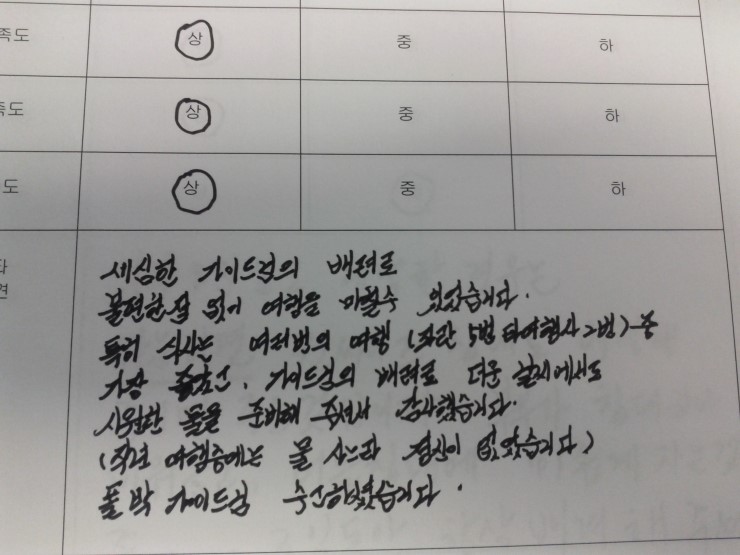 족도 상 중 하
족도 상 중 하
도 상 중 하
타
견
세심한 가이드님의 배려로
불편한점 없이 여행을 마칠수 있었습니다.
특히 식사는 여러번의 여행 (자란 5번 타여행사 2번) 중
가장 좋았고. 가이드님의 배려로 더운 날씨에서도
시원한 물을 준비해 주셔서 감사했습니다.
(작년 여행중에는 물 사느라 정신이 없었습니다)
박 가이드님 수고하셨습니다.